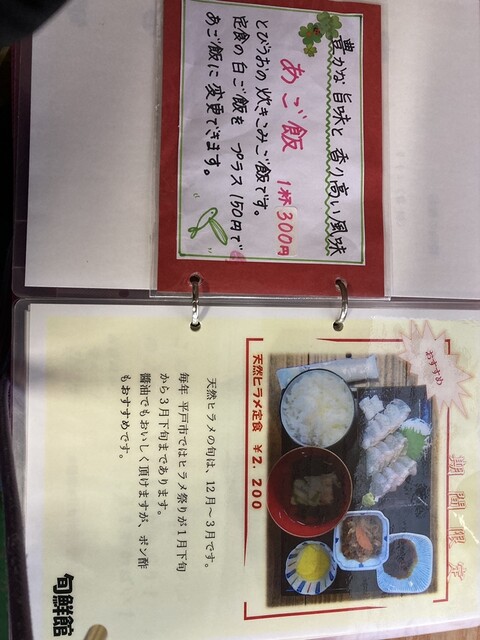 豊かな旨味と香り高い風味
あご飯 1杯300円
とびうおの炊きこみご飯です。
定食の白ご飯を プラス150円で
あご飯に変更できます。
期間限定
おすすめ
天然ヒラメ定食 ¥2,200
天然ヒラメの旬は、12月～3月です。
毎年 平戸市ではヒラメ祭りが1月下旬
から3月下旬まであります。
醤油でもおいしく頂けますが、ポン酢
もおすすめです。
旬鮮館